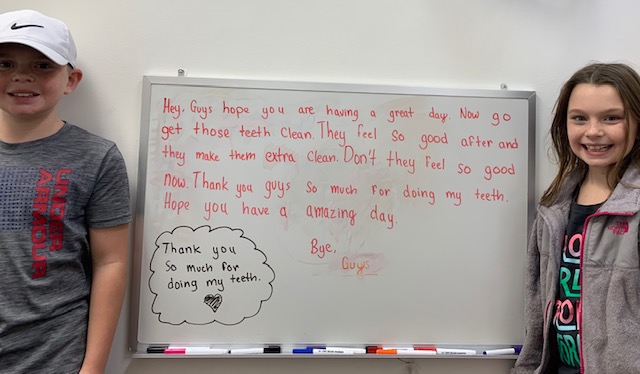 Hey, Guys hope you are having a great day. Now go
get those teeth clean. They feel so good after and
they make them extra clean. Don't they feel so good
now. Thank you guys so much for doing my teeth.
Hope you have a amazing day.
Bye,
Guys
Thank you
So much for
doing my teeth.
UNDER
ARMOUR